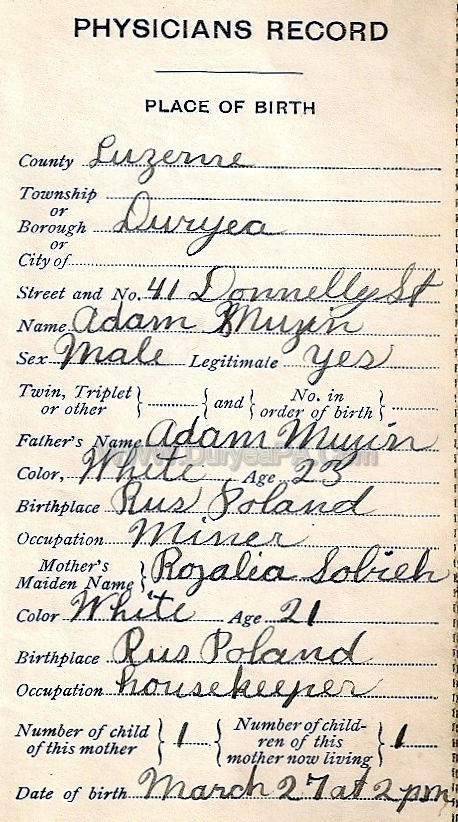 PHYSICIANS RECORD
PLACE OF BIRTH
County Luzerne
Township
or
Borough Duryea
or
City of
Street and No. 41 Donnelly St
Name Adam Muzin
Sex Male Legitimate yes
Twin, Triplet or other } { and } No. in order of birth }
Father's Name Adam Muzin
Color, White Age 23
Birthplace Rus Poland
Occupation Miner
Mother's Maiden Name } Rozalia Sobieh
Color White Age 21
Birthplace Rus Poland
Occupation housekeeper
Number of child of this mother } 1 { Number of child-
ren of this mother now living } 1
Date of birth March 27 at 2 pm
www.DuryeaPA.com